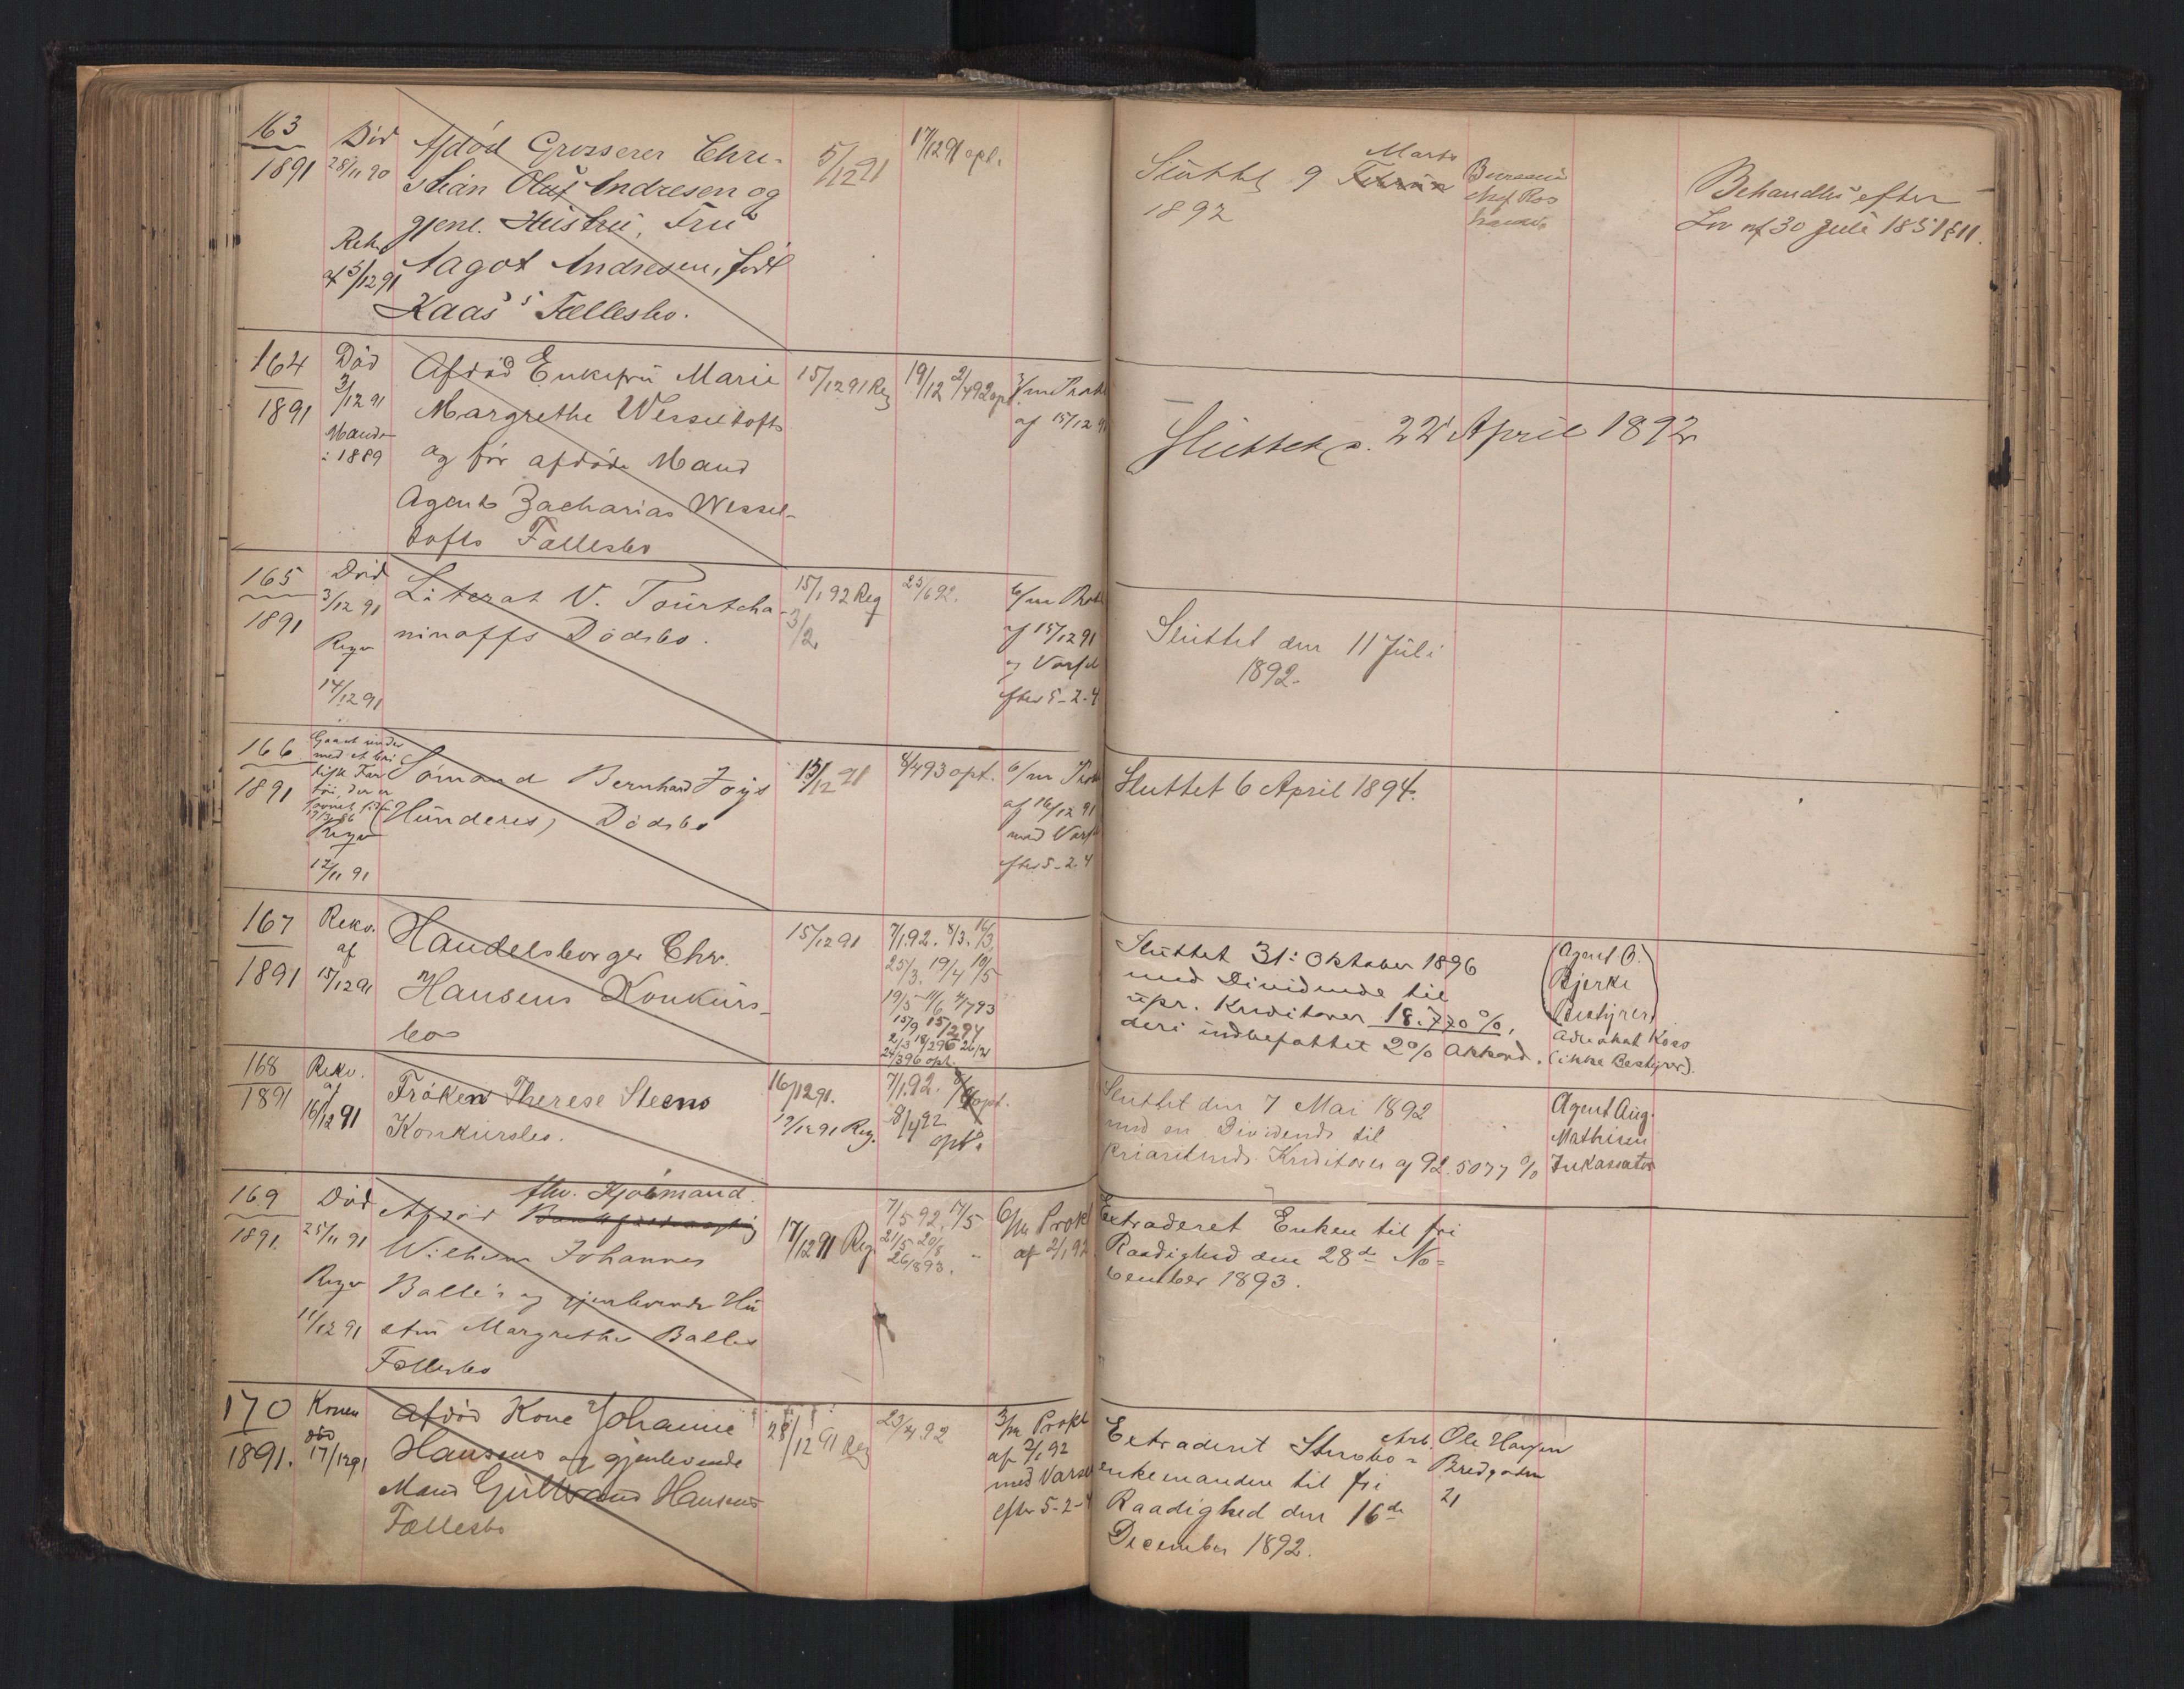 163
1891
Död
28/11 90
Rekv
af 5/12 91
Afdöd Grosserer Chri-
stian Oluf Andresen og
gjenl. Hustru, Fru
Aagot Andresen, född
Kaas's Fællesbo.
5/12 91
17/12 91 opt.
Sluttet 9 Marts
1892
Behandlet efter
Lov af 30 Juli 1851 § 11.
164
1891
Död
3/12 91
Mand
: 1889
Afdöd Enkefru Marie
Margrethe Wesseltofts
og för afdöde Mand
Agent Zacharias Wessel-
tofts Fællesbo
15/12 91 Reg
19/12 2/4 92 opt
3/m Prokl
af 15/12 91
Sluttet d. 22 April 1892
165
1891
Död
3/12 91
Regv
14/12 91
Literat V. Tourtcha-
ninoffs Dödsbo.
15/1 92 Reg
3/2
25/6 92.
6/m Prokl
af 15/12 91
og Varsel
efter 5-2-4
Sluttet den 11 Juli
1892.
166
1891
Gaaet under
med et bri
tisk Far
töi, der er
Regv
12/11 91
Sömand Bernhard Foys
(Hunderes) Dödsbo
15/12 91
8/4 93 opt.
6/m Prokl
af 16/12 91
med Vars
efter 5-2-4
Sluttet 6 April 1894.
167
1891
Rekv.
af
15/12 91
Handelsborger Chr.
Hansens Konkurs-
bo
15/12 91
7/1 92. 8/3. 16/3.
25/3. 19/4 10/5
19/5 11/6 4/7 93
15/9 15/12 94
2/3 18/2 96 26/2
24/3 96 opt.
Sluttet 31: Oktober 1896
med Dividende til
upr. Kreditorer 18.770 %,
deri indbefattet 2% Akkord.
(Agent O.
Bjerke
Bestyrer)
Advokat Koss
(ikke Bestyrer).
168
1891
Rekv.
af
16/12 91
Fröken Therese Steens
Konkursbo.
16/12 91.
7/1 92.
8/4 92
opt.
Sluttet den 7 Mai 1892
med en Dividende til
Kreditorer af 92.5077 %
Agent Aug.
Mathisen
Inkassator
169
1891.
Död
25/11 91
Regv
11/12 91
fhv. Kjöbmand
Afdöd
Wilhelm Johannes
Balle's og gjenlevende Hu
stru Margrethe Balles
Fællesbo
17/12 91 Reg
7/5 92. 14/5
21/5 20/8
26/8 93.
6/m Prokl
af 2/1 92
Extraderet Enken til fri
Raadighed den 28de No-
vember 1893.
170
1891.
Konen
död
17/12 91
Afdöd Kone Johanne
Hansens og gjenlevende
Mand Gulbrand Hansens
Fællesbo
28/12 91 Reg
23/4 92
3/m Prokl
af 2/1 92
med Varsel
efter 5-2-4
Extraderet Sterbo-
enkemanden til fri
Raadighed den 16de
December 1892.
Arb. Ole Hansen
Bredgaden
21